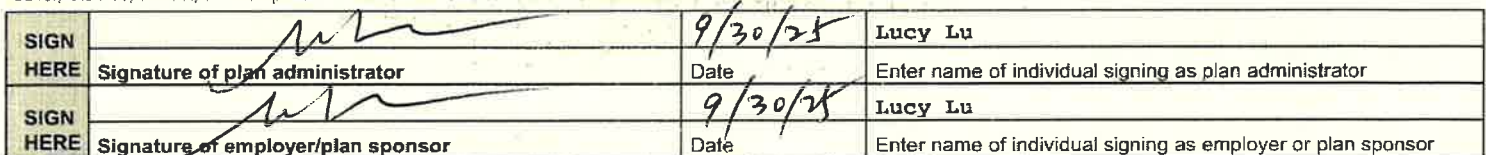 SIGN
9/30/25 Lucy Lu
HERE Signature of plan administrator Date Enter name of individual signing as plan administrator
SIGN
9/30/25 Lucy Lu
HERE Signature of employer/plan sponsor Date Enter name of individual signing as employer or plan sponsor